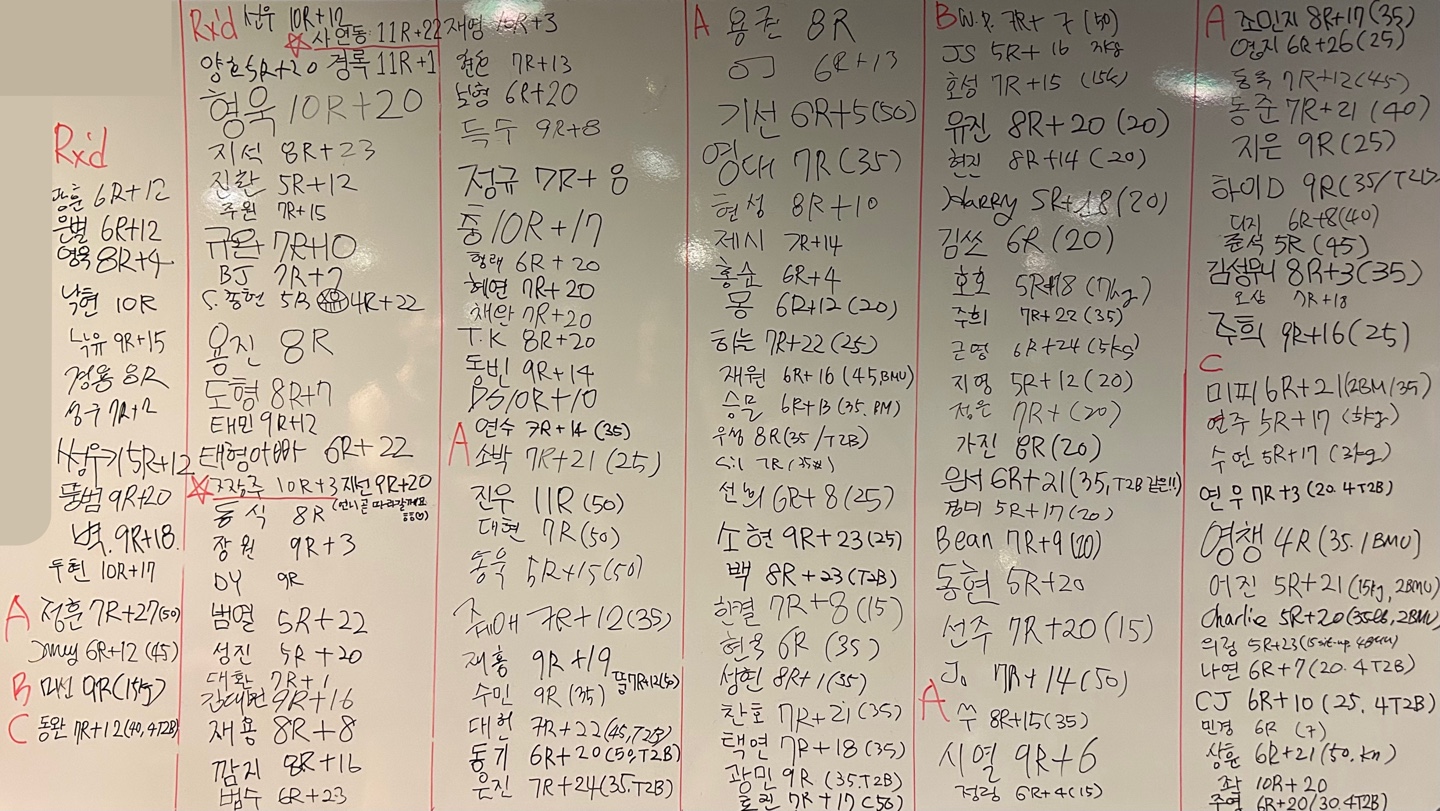 Rx'd
6R+12
은별 6R+12
영욱 8R+4
낙현 10R
낙유 9R+15
경용 8R
성구 7R+2
5R+12
뚱범 9R+20
벽. 9R+18.
두현 10R+17
A 정훈 7R+27(50)
6R+12 (45)
B 미선 9R(15kg)
C 동완 7R+12(40, 4T2B)
Rx'd 선우 10R+12
사 연동 11R+22
양호 5R+20 경록 11R+1
형욱 10R+20
지석 8R+23
진환 5R+12
주원 7R+15
규완 7R+10
BJ 7R+7
S. 종현 5R 4R+22
용진 8R
도형 8R+7
태민 9R+12
태형아빠 6R+22
10R+3 지선 9R+20
동식 8R
장원 9R+3
DY 9R
범열 5R+22
성진 5R+20
대환 7R+1
김대현 9R+16
재용 8R+8
깜지 8R+16
범수 6R+23
재영 10R+3
현호 7R+13
보형 6R+20
득수 9R+8
정규 7R+8
훙 10R+17
형래 6R+20
혜연 7R+20
채완 7R+20
T.K 8R+20
동빈 9R+14
DS 10R+10
A 연수 7R+14 (35)
소박 7R+21 (25)
진우 11R (50)
대현 7R (50)
동욱 5R+15(50)
7R+12(35)
재홍 9R+19
뜸 7R+12(50)
수민 9R (35)
대헌 7R+22(45,T2B)
동기 6R+20(50,T2B)
은진 7R+24(35.T2B)
A 용권 8R
OJ 6R+13
기선 6R+5(50)
영대 7R (35)
현성 8R+10
제시 7R+14
홍순 6R+4
몽 6R+12(20)
하늘 7R+22(25)
재원 6R+16 (45,BMU)
승물 6R+13 (35.BM)
우성 8R(35/T2B)
Gil 7R
선뇌 6R+8(25)
소현 9R+23(25)
백 8R+23(T2B)
한결 7R+8(15)
현욱 6R (35)
성헌 8R+1(35)
찬호 7R+21(35)
택연 7R+18(35)
광민 9R (35.T2B)
7R+17(50)
B W.P. 7R+7 (50)
JS 5R+16
호성 7R+15 (15k)
유진 8R+20 (20)
현진 8R+14 (20)
Harry 5R+18(20)
김쏘 6R (20)
호호 5R+18 (7kg)
주희 7R+22 (35)
근영 6R+24(5kg)
지영 5R+12(20)
정은 7R+(20)
가진 8R(20)
원서 6R+21(35,T2B 같은!!)
경미 5R+17(20)
Bean 7R+9(20)
동현 5R+20
선주 7R+20(15)
Jo 7R+14(50)
A 쑤 8R+15(35)
시열 9R+6
정림 6R+4(15)
A 조민지 8R+17(35)
영지 6R+26(25)
동욱 7R+12(45)
동준 7R+21 (40)
지은 9R(25)
하이D 9R(35/T2B)
디지 6R+8(40)
준석 5R (45)
김성우니 8R+3(35)
오상 7R+18
주희 9R+16(25)
C
미피 6R+21(2BM/35)
연주 5R+17 (3kg)
수연 5R+17 (3kg)
연우 7R+3 (20.4T2B)
영챙 4R(35.1BMU)
어진 5R+21 (15kg, 2BMU)
Charlie 5R+20(35lb, 2BMU)
의림 5R+23(15 sit-up 4BMU)
나연 6R+7(20.4T2B)
CJ 6R+10(25.4T2B)
민경 6R (7)
상훈 6R+21(50.kn)
좌 10R+20
주영 6R+20(30.4T2B)